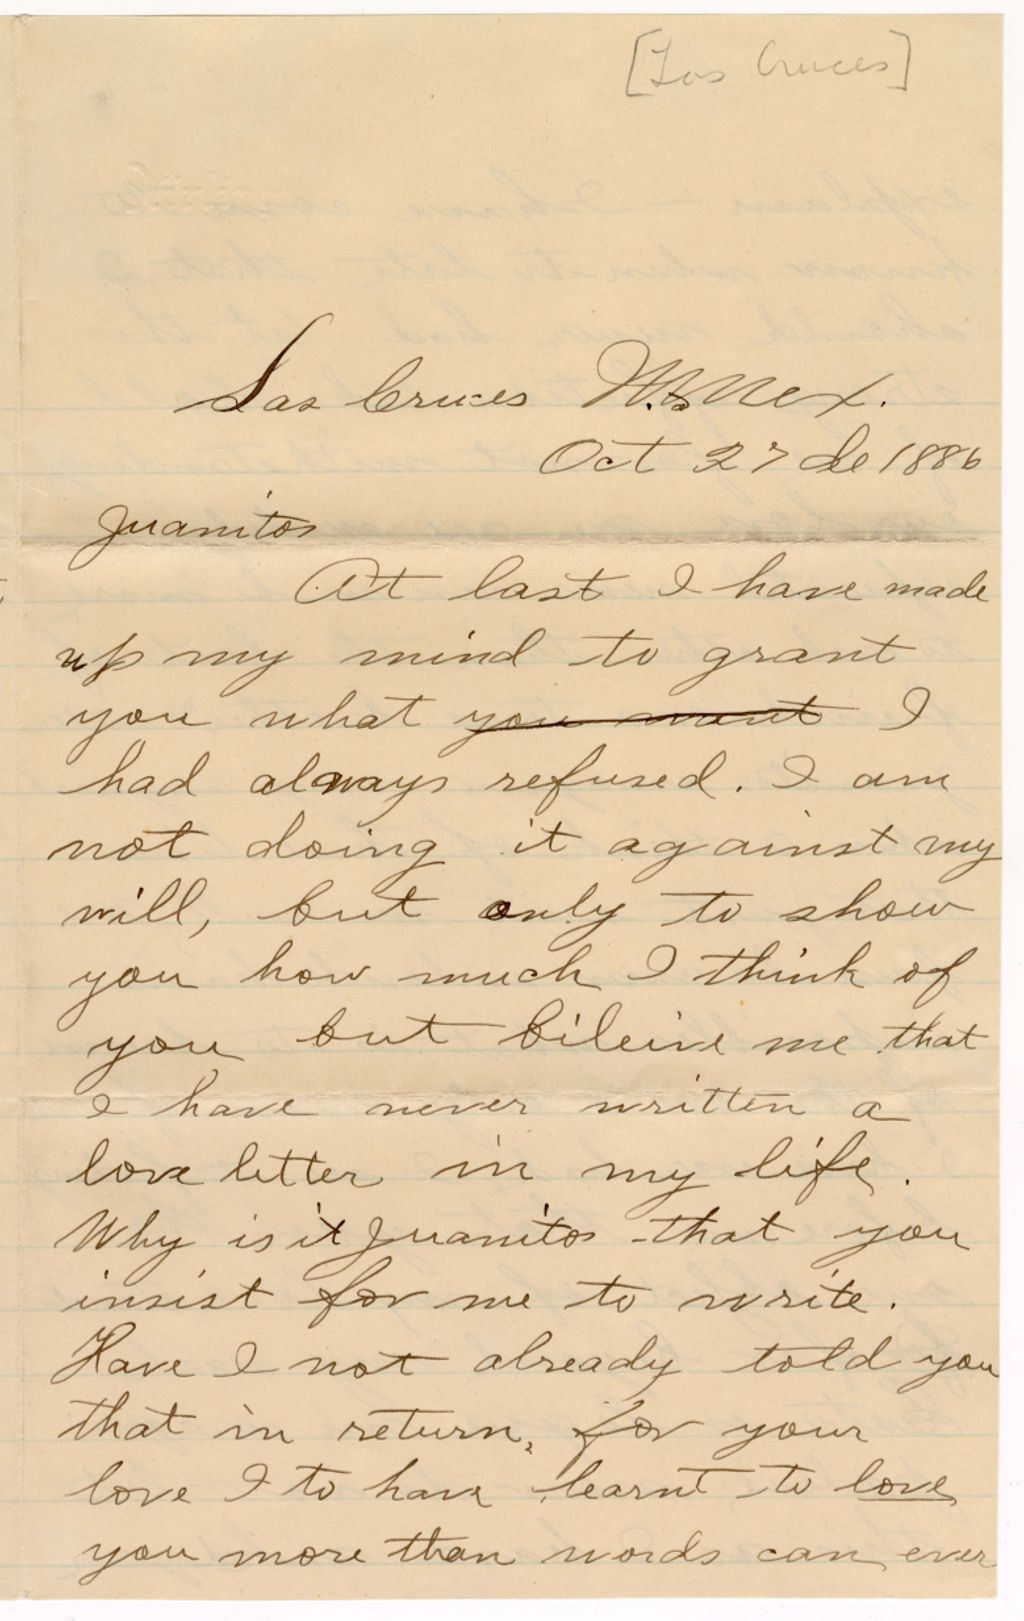 [Las Cruces]
Las Cruces N. Mex.
Oct 27 de 1886
Juanitos
At last I have made
up my mind to grant
you what you want I
had always refused. I am
not doing it against my
will, but only to show
you how much I think of
you but bileive me that
I have never written a
love letter in my life.
Why is it Juanitos that you
insist for me to write.
Have I not already told you
that in return, for your
love I to have learnt to love
you more than words can ever